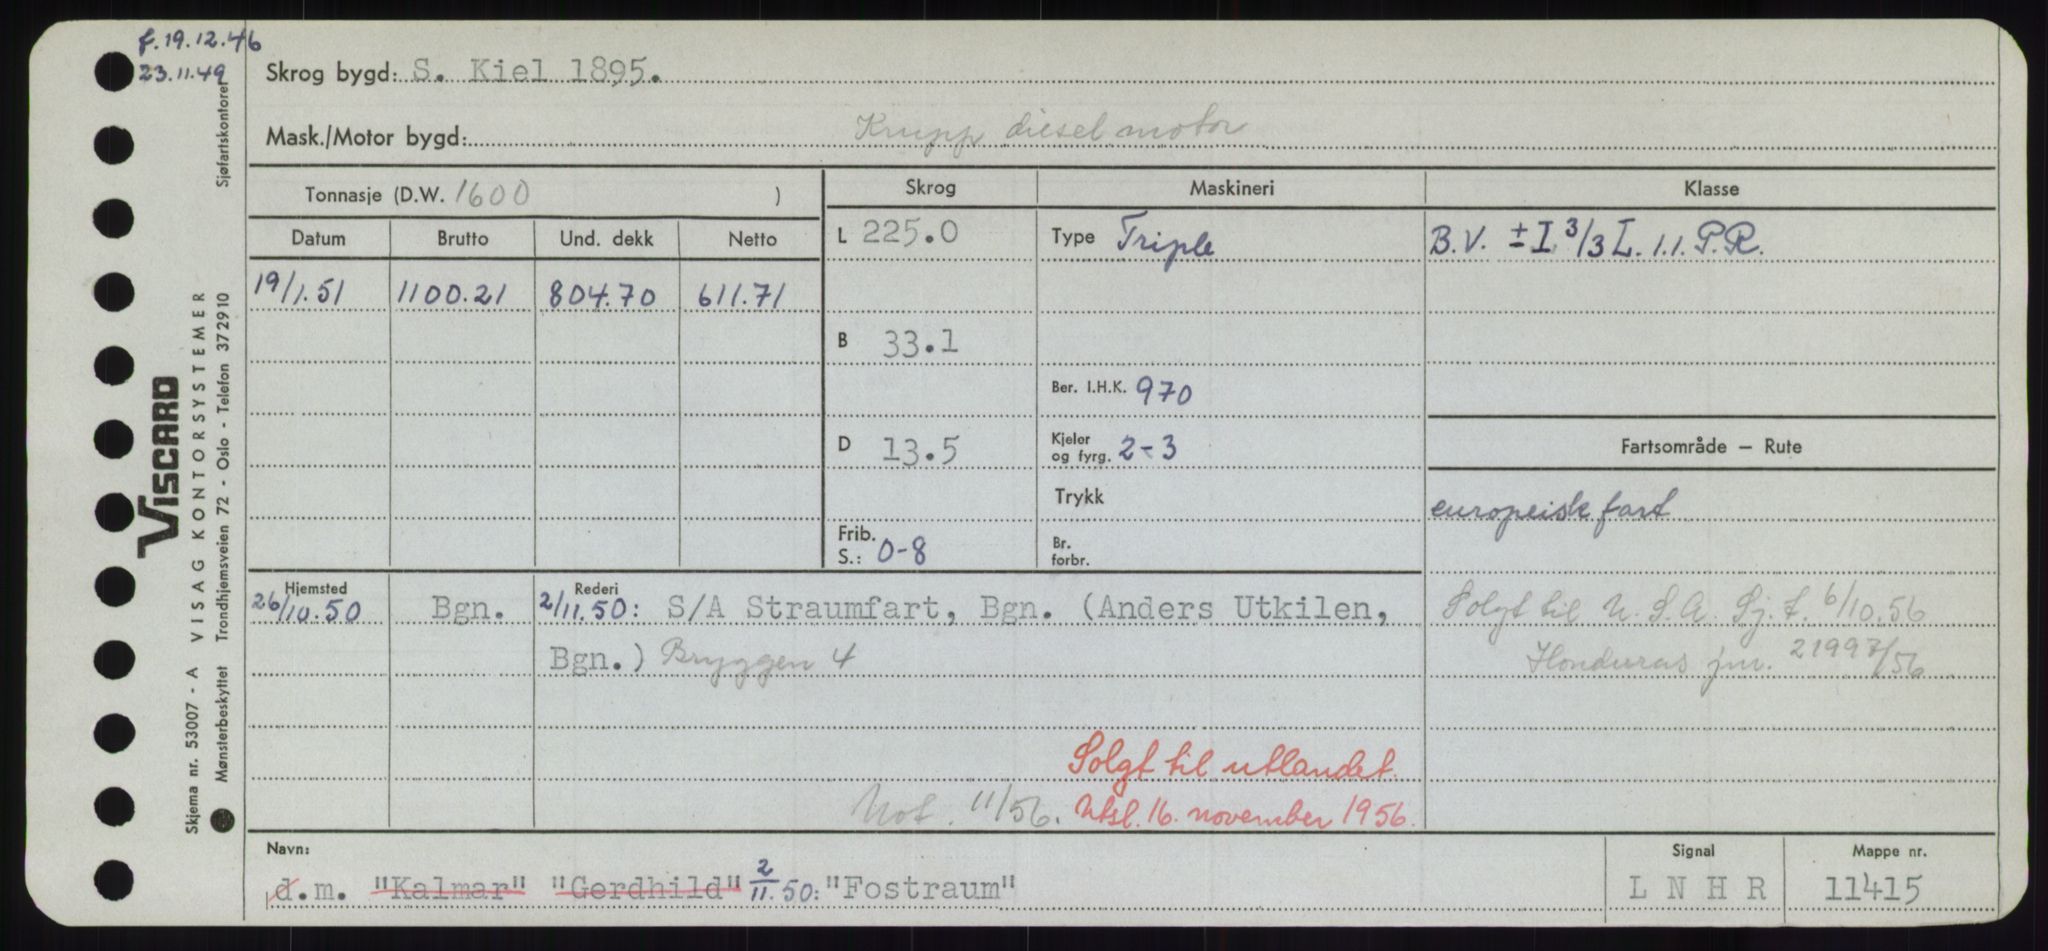 f. 19.12.46
23.11.49
Sjøfartskontoret
Skrog bygd: S. Kiel 1895.
Mask./Motor bygd: Krupp diesel motor
Tonnasje (D.W. 1600 )
Skrog Maskineri Klasse
Datum Brutto Und. dekk Netto
L 225.0 Type Triple B.V. ± I 3/3 L. 1.1. P.R.
19/1.51 1100.21 804.70 611.71
B 33.1
Ber. I.H.K. 970
D 13.5 Kjeler og fyrg. 2-3
Fartsområde — Rute
Trykk
europeisk fart
Frib. S.: 0-8
Br. forbr.
Hjemsted Rederi
26/10.50 Bgn. 2/11.50: S/A Straumfart, Bgn. (Anders Utkilen,
Bgn.) Bryggen 4
Solgt til U.S.A. Sj.f. 6/10.56
Honduras jnr. 21997/56
Solgt til utlandet.
Not. 11/56. Utsl. 16. november 1956.
Navn: Signal Mappe nr.
d.m. "Kalmar" "Gerdhild" 2/11.50: "Fostraum" L N H R 11415
VISCARD
VISAG KONTORSYSTEMER
Skjema nr. 53007 - A
Mønsterbeskyttet Trondhjemsveien 72 - Oslo - Telefon 372910